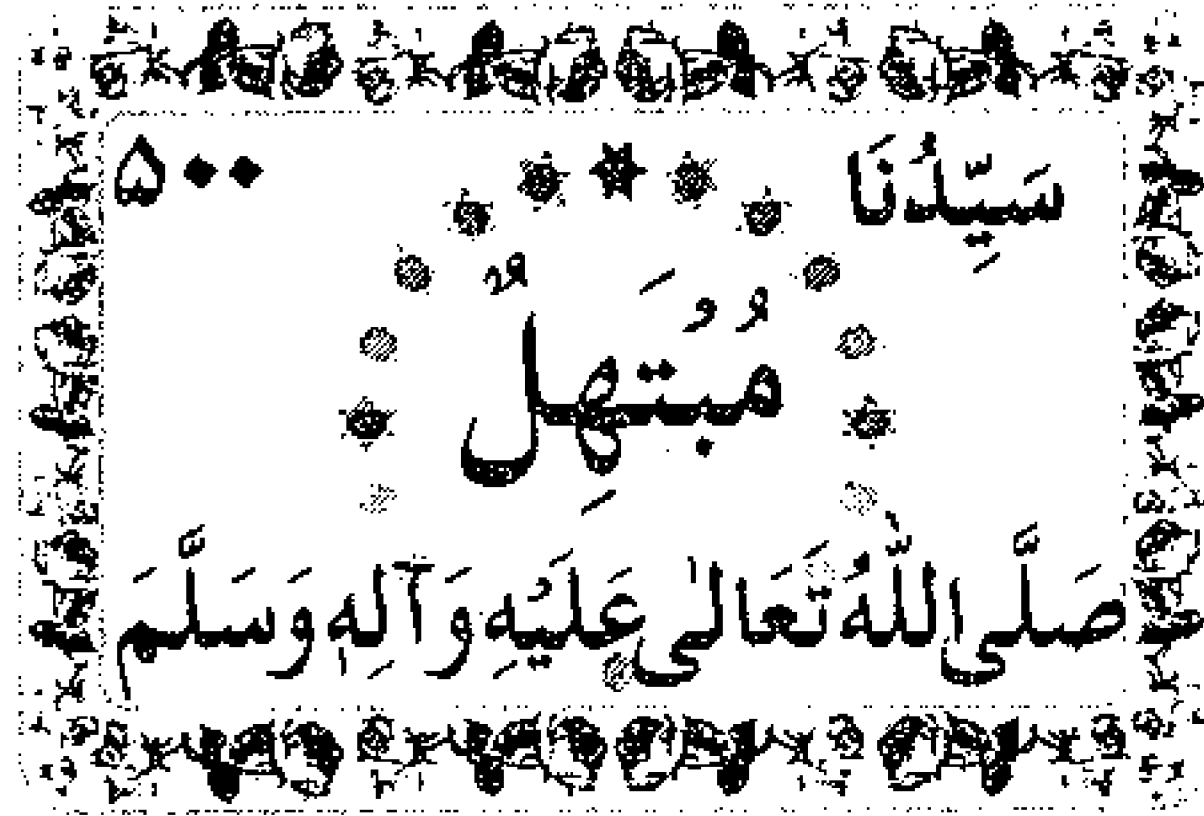 سَيِّدُنَا ۵۰۰
مُبْتَهِلٌ
صَلَّى اللّٰهُ تَعَالٰى عَلَيْهِ وَآلِهٖ وَسَلَّمَ